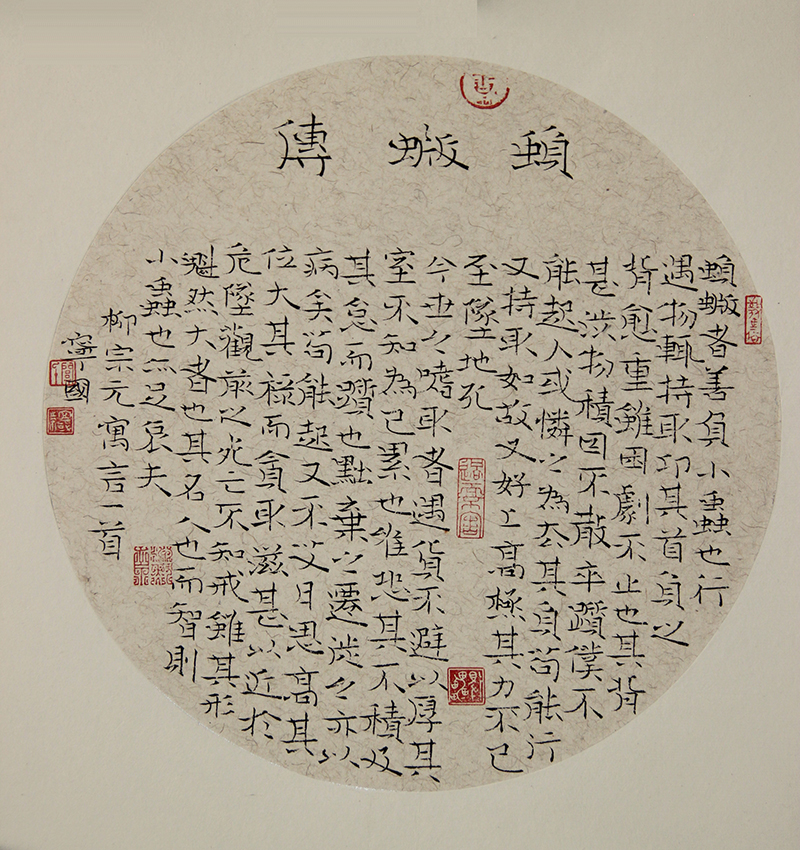 蝜蝂傳
蝜蝂者善負小蟲也行
遇物輒持取卬其首負之
背愈重雖困劇不止也其背
甚澁物積因不散卒躓僕不
能起人或憐之為去其負苟能行
又持取如故又好上高極其力不已
至墜地死
今世之嗜取者遇貨不避以厚其
室不知為己累也惟恐其不積及
其怠而躓也黜棄之遷徙之亦以
病矣苟能起又不艾日思高其
位大其祿而貪取滋甚以近於
危墜觀前之死亡不知戒雖其形
魁然大者也其名人也而智則
小蟲也無足哀夫
柳宗元寓言一首
寧國